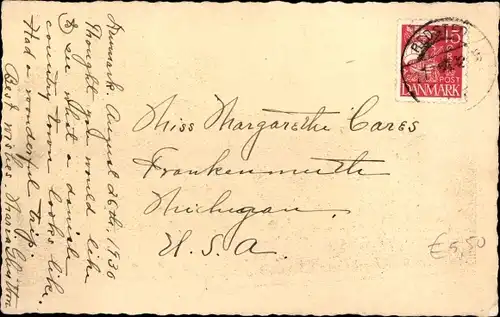 Denmark, August 26th, 1930
Thought you would like
to see what a danish
country town looks like.
Had a wonderful trip.
Best wishes.
Miss Margarethe Cares
Frankenmuth
Michigan
U.S.A.
15
POST
DANMARK
€5,50